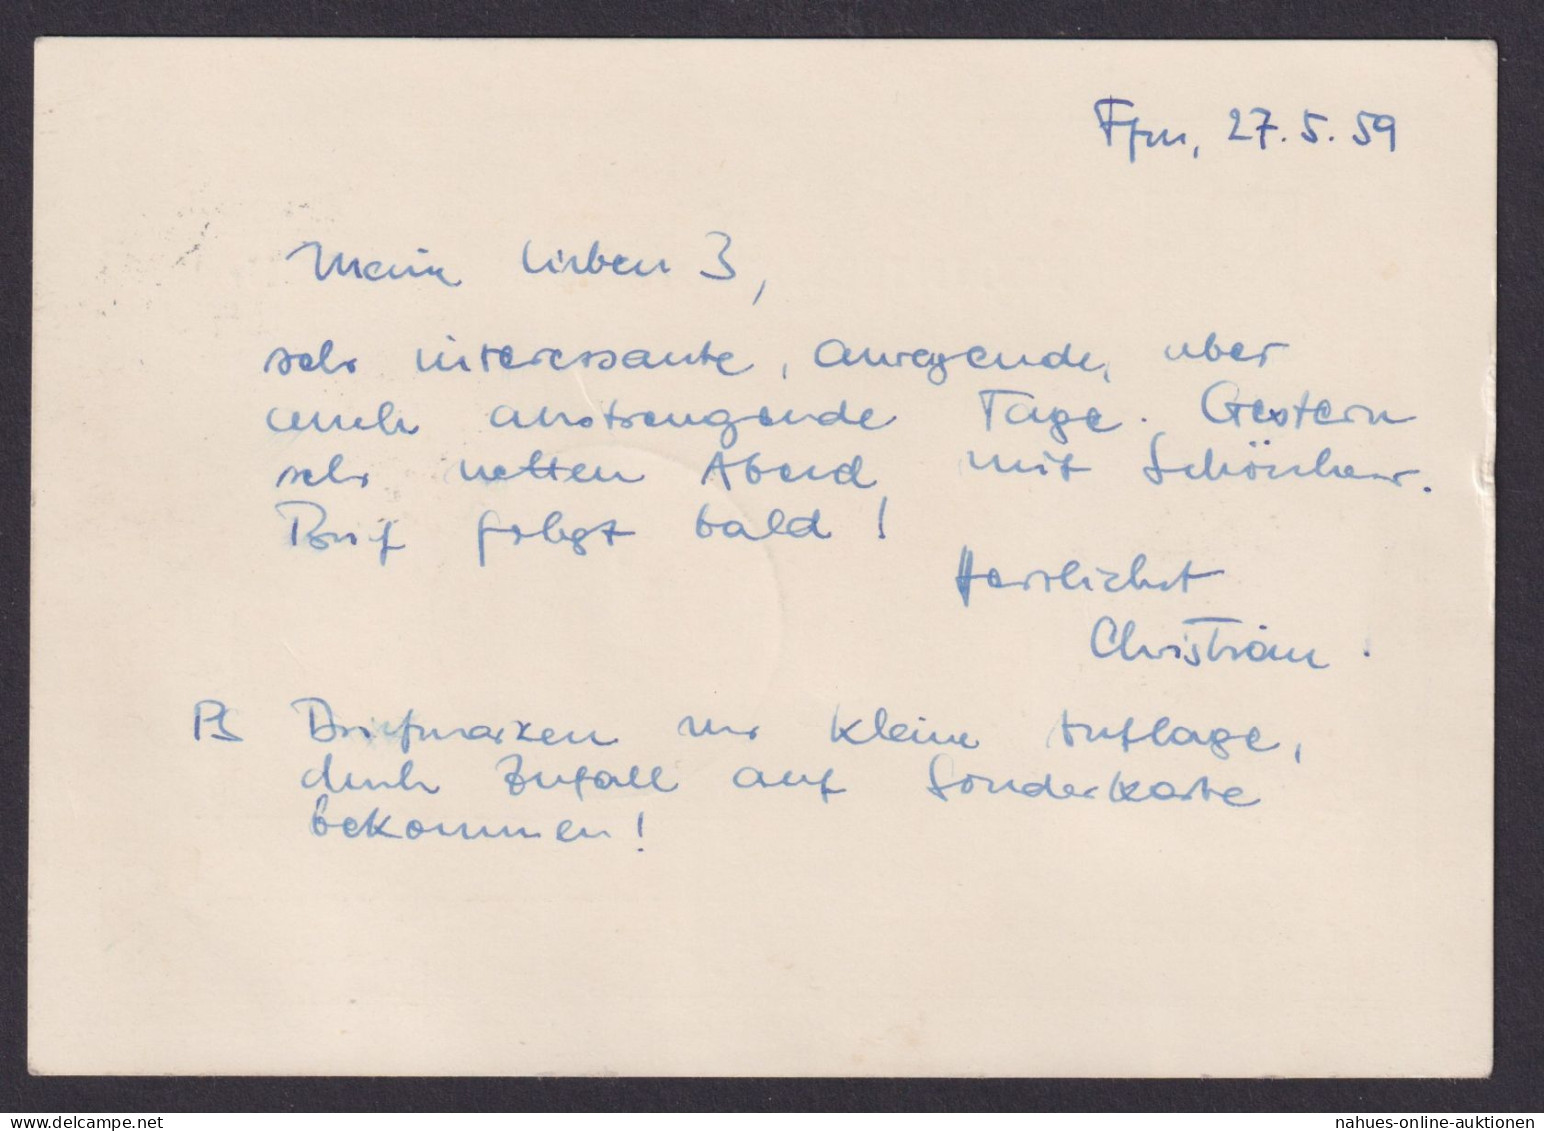 Ffm, 27.5.59
Meine lieben 3,
sehr interessante, anregende, aber
auch anstrengende Tage. Gestern
sehr netten Abend mit Schönherr.
Brief folgt bald!
Herzlichst
Christian.
PS Briefmarken nur kleine Auflage,
durch Zufall auf Sonderkarte
bekommen!
nahues-online-auktionen
www.delcampe.net